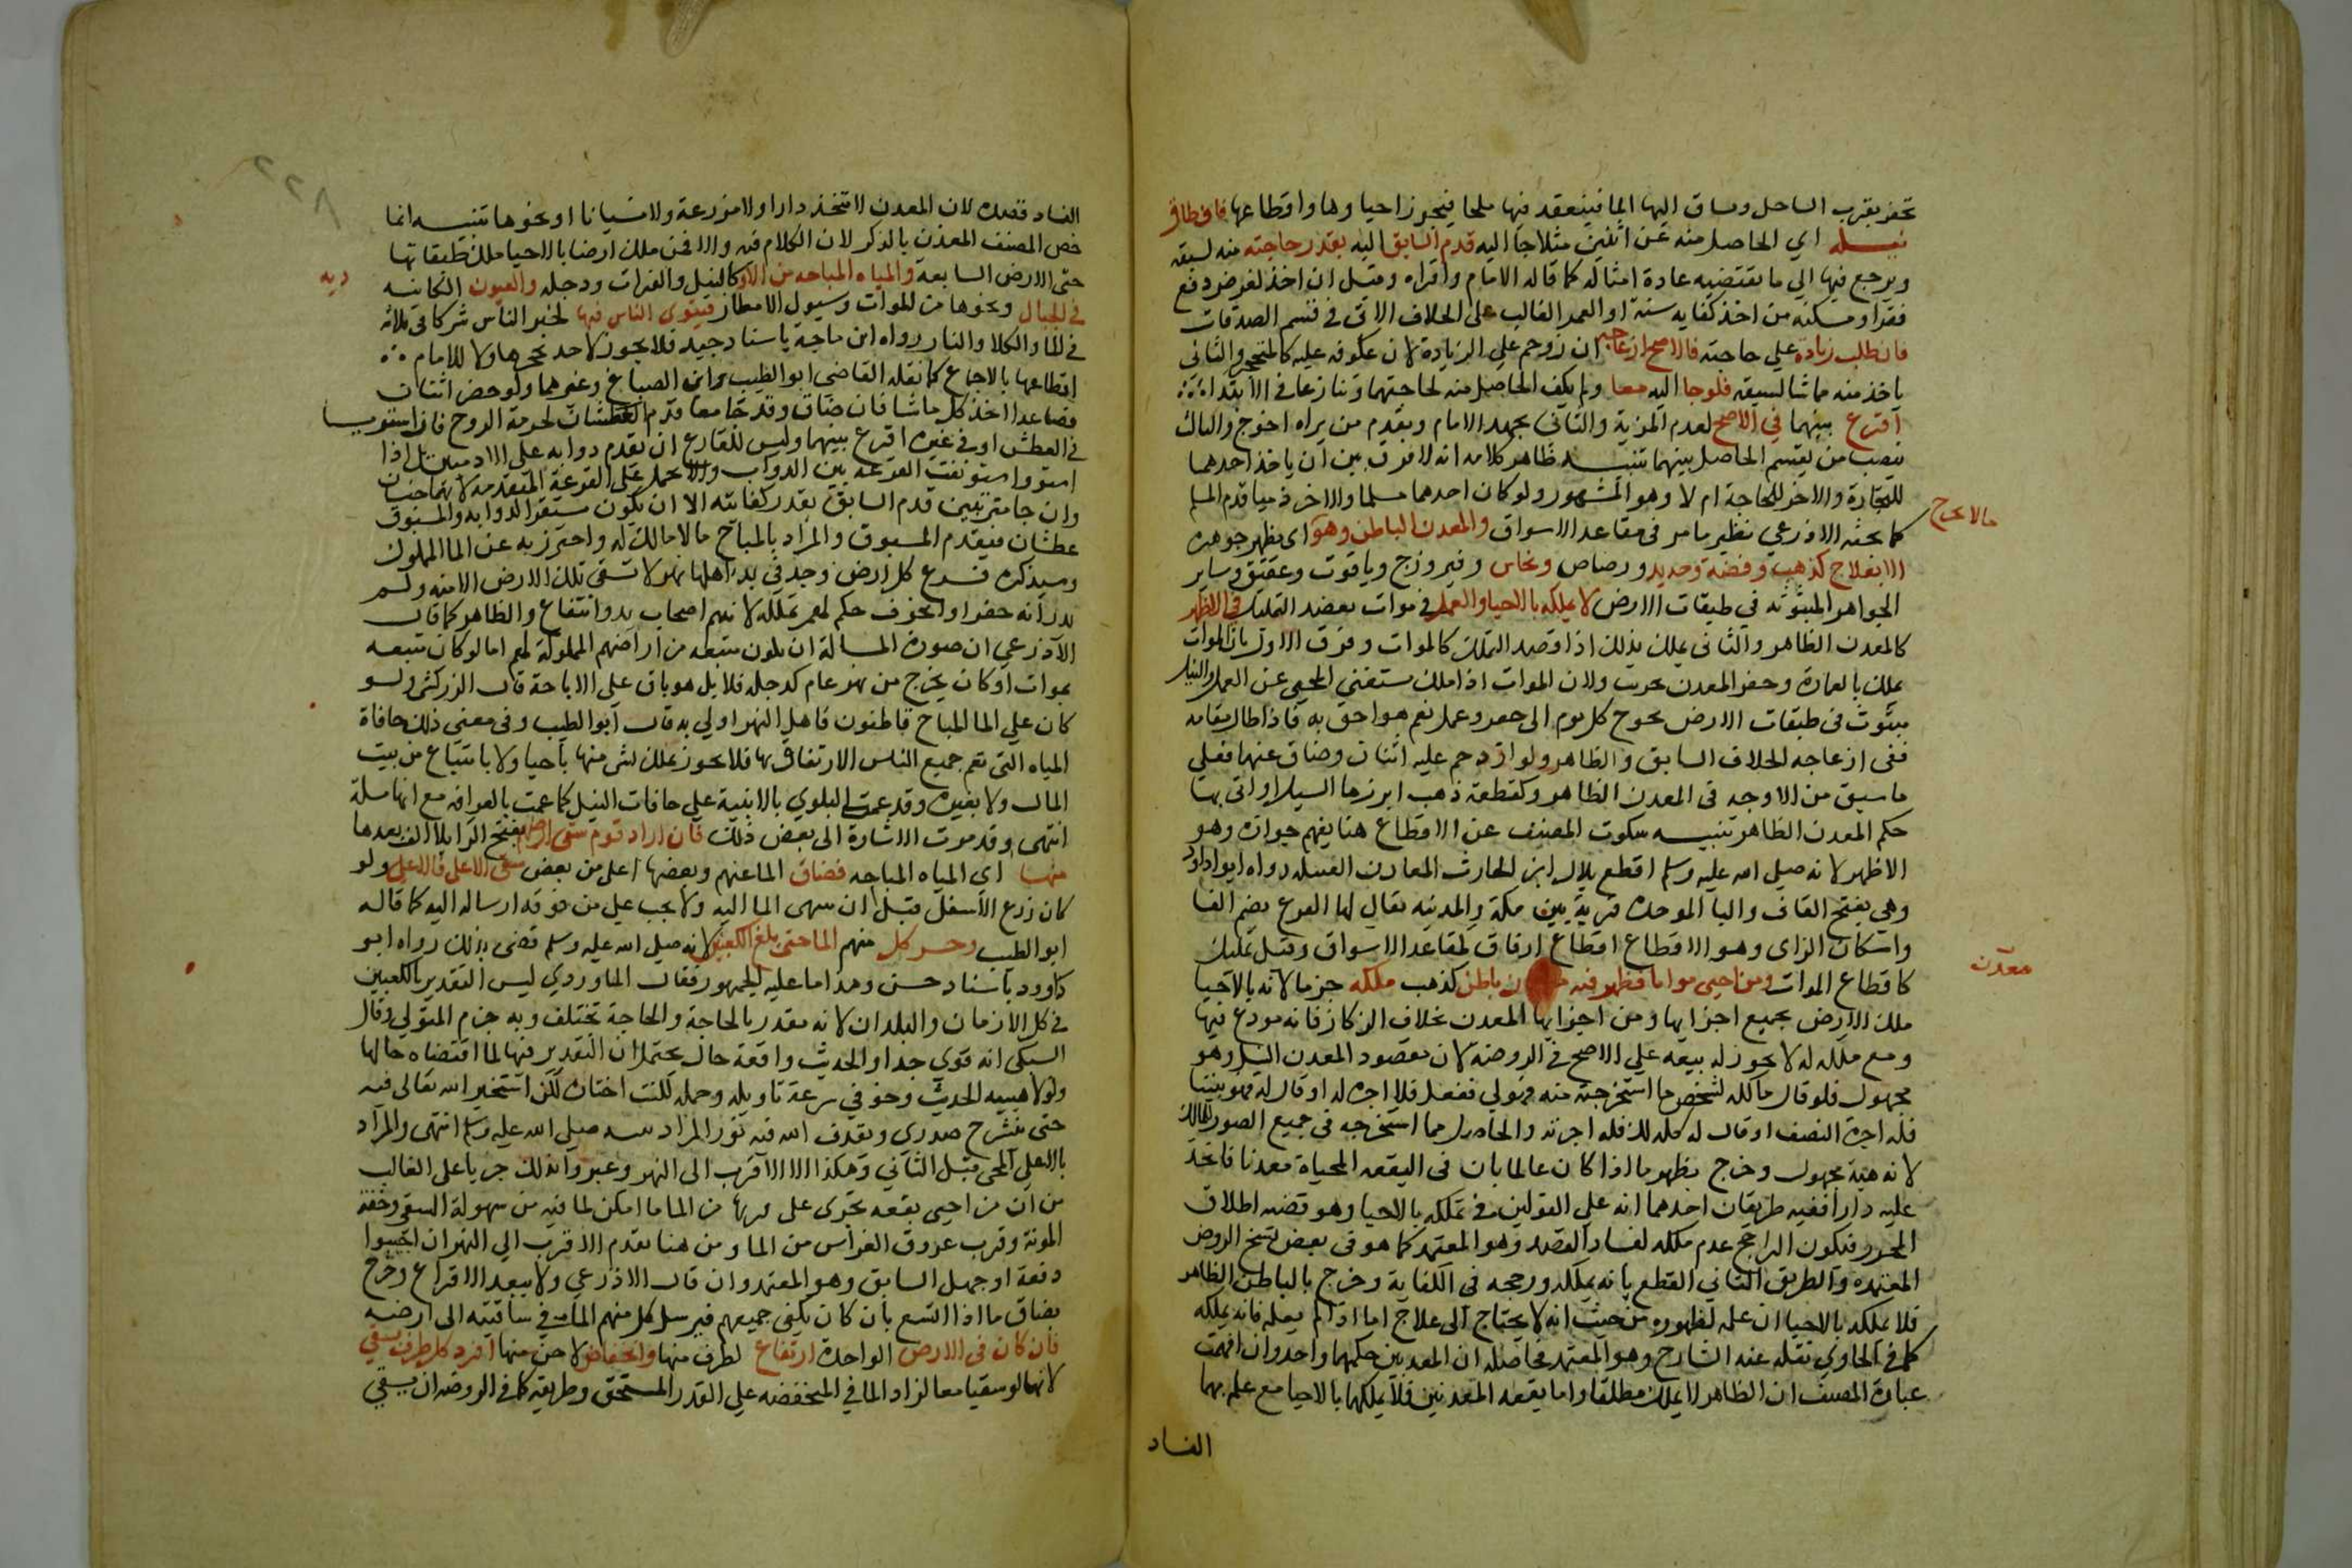 تحفر بقرب الساحل ويساق اليها الما فينعقد فيها ملحا فيجوز احياوها واقطاعها فان ضاق
نيله اي الحاصل منه عن اثنين مثلا جا اليه قدم السابق اليه بقدر حاجته منه لسبقه
ويرجع فيها الي ما تقتضيه عادة امثاله كما قاله الامام واقراه وقيل ان اخذ لغرض دفع
فقر او مسكنة من اخذ كفايه سنة او العمر الغالب على الخلاف الاتي في قسم الصدقات
فان طلب زيادة علي حاجته فالاصح ازعاجه ان زوحم علي الزيادة لان عكوفه عليه كالمتحجر والثاني
ياخذ منه ما شا لسبقه فلو جا اليه معا ولم يكف الحاصل منه لحاجتهما وتنازعا في الابتدا
اقرع بينهما في الاصح لعدم المزية والثاني يجتهد الامام ويقدم من يراه احوج والثالث
ينصب من يقسم الحاصل بينهما تنبيه ظاهر كلامه انه لا فرق بين ان ياخذ احدهما
للتجارة والاخر للحاجة ام لا وهو المشهور ولو كان احدهما مسلما والاخر ذميا قدم المسلم
كما بحثه الاذرعي نظير ما مر في مقاعد الاسواق والمعدن الباطن وهو اى يظهر جوهره
ما لا يخرج
الا بعلاج كذهب وفضة وحديد ورصاص ونحاس وفيروزج وياقوت وعقيق وساير
الجواهر المبثوثه في طبقات الارض لا يملكه بالاحيا والعمل في موات بقصد التملك في الاظهر
كالمعدن الظاهر والثاني يملك بذلك اذا قصد التملك كالموات وفرق الاول بان الموات
يملك بالعمارة وحفر المعدن تخريب ولان الموات اذا ملك ستغني المحيي عن العمل والنيل
مبثوث في طبقات الارض يحوج كل يوم الى حفر وعمل نعم هو احق به فاذا طال مقامه
ففي ازعاجه الخلاف السابق والظاهر ولو ازدحم عليه اثنان وضاق عنهما فعلي
ما سبق من الاوجه في المعدن الظاهر وكقطعة ذهب ابرزها السيل او اتى بها
حكم المعدن الظاهر تنبيه سكوت المصنف عن الاقطاع هنا يفهم جوازه وهو
الاظهر لانه صلي الله عليه وسلم اقطع بلال ابن الحارث المعادن القبليه رواه ابو اداود
وهي بفتح القاف والبا الموحدة قرية بين مكة والمدينه يقال لها الفرع بضم الفا
واسكان الزاى وهو الاقطاع اقطاع ارفاق لمقاعد الاسواق وقيل تمليك
كاقطاع الموات ومن احيى مواتا فظهر فيه ن باطن كذهب ملكه جزما لانه بالاحيا
معدن
ملك الارض بجميع اجزايها ومن اجزايها المعدن بخلاف الركاز فانه مودع فيها
ومع ملكه له لا يجوز له بيعه علي الاصح في الروضة لان مقصود المعدن النيل وهو
مجهول فلو قال مالكه لشخص ما استخرجته منه فهولي ففعل فلا اجرة له او قال له فهو بيننا
فله اجرة النصف او قال له كله لك فله اجرته والحاصل مما استخرجه في جميع الصور للمالك
لانه هبة مجهول وخرج بظهر ما اذا كان عالما بان في البقعه المحياة معدنا فاتخذ
عليه دارا ففيه طريقان احدهما انه علي القولين في تملكه بالاحيا وهو قضيه اطلاق
المحرر فيكون الراجح عدم ملكه لفساد القصد وهو المعتمد كما هو في بعض نسخ الروض
المعتمده والطريق الثاني القطع بانه يملكه ورجحه في الكفاية وخرج بالباطن الظاهر
فلا يملكه بالاحيا ان علمه لظهوره من حيث انه لا يحتاج الى علاج اما اذا لم يعلمه فانه يملكه
كما في الحاوي نقله عنه الشارح وهو المعتمد فحاصله ان المعدنين حكمهما واحد وان افهمت
عبارة المصنف ان الظاهر لا يملك مطلقا واما بقعه المعدنين فلا يملكها بالاحيا مع علمه بهما
الفساد
٢٢٨
الفساد قصده لان المعدن لا يتخذ دارا ولا مزرعة ولا بستانا او نحوها تنبيه انما
خص المصنف المعدن بالذكر لان الكلام فيه والا فمن ملك ارضا بالاحيا ملك طبقاتها
حتى الارض السابعة والمياه المباحه من الاو كالنيل والفرات ودجله والعيون الكاينه
ديه
في الجبال ونحوها من الموات وسيول الامطار فيستوي الناس فيها لخبر الناس شركا في ثلاثة
في الما والكلا والنار رواه ابن ماجه باسناد جيد فلا يجوز لاحد تحجرها ولا للامام
اقطاعها بالاجماع كما نقله القاضي ابو الطيب وابن الصباغ وغيرهما ولو حضر اثنان
فصاعدا اخذ كل ما شا فان ضاق وقد جا معا قدم العطشان لحرمة الروح فان استويا
في العطش او في غيره اقرع بينهما وليس للقارع ان يقدم دوابه علي الادميين بل اذا
استووا استونفت القرعه بين الدواب ولا يحمل علي القرعة المتقدمه لانهما جنسان
وان جا مترتبين قدم السابق بقدر كفايته الا ان يكون مستقيا لدوابه والمسبوق
عطشان فيقدم المسبوق والمراد بالمباح ما لا مالك له واحترز به عن الما المملوك
وسيذكره فرع كل ارض وجد في يد اهلها نهر لا تسقى تلك الارض الا منه ولم
يدر انه حفر او انخرق حكم لهم بملكه لانهم اصحاب يد وانتفاع والظاهر كما قال
الاذرعي ان صورة المسالة ان يكون منبعه من اراضيهم المملوكة لهم اما لو كان منبعه
بموات او كان يخرج من نهر عام كدجله فلا بل هو باق علي الاباحة قال الزركشي ولو
كان علي الما المباح قاطنون فاهل النهر اولي به قال ابو الطيب وفي معنى ذلك حافاة
المياه التي تعم جميع الناس الارتفاق بها فلا يجوز تملك شي منها باحيا ولا بابتياع من بيت
المال ولا بغيره وقد عمت البلوي بالابنية علي حافات النيل كما عمت بالقرافه مع انها مسبلة
انتهى وقد مرت الاشارة الى بعض ذلك فان اراد قوم سقى ارضهم بفتح الرا بلا الف بعدها
منها اي المياه المباحه فضاق الما عنهم وبعضها اعلى من بعض سقى الاعلى فالاعلى ولو
كان زرع الاسفل قبل ان ينتهي الما اليه ولا يجب علي من فوقه ارساله اليه كما قاله
ابو الطيب وحبس كل منهم الما حتى يبلغ الكعبين لانه صلي الله عليه وسلم قضى بذلك رواه ابو
داوود باسناد حسن وهذا ما عليه الجمهور فقال الماوردي ليس التقدير بالكعبين
في كل الازمان والبلدان لانه مقدر بالحاجة والحاجة تختلف وبه جزم المتولي وقال
السبكي انه قوي جدا والحديث واقعة حال يحتمل ان التقدير فيها لما اقتضاه حالها
ولولا هيبه الحديث وخوفي سرعة تاويله وحمله لكنت اختاره لكن استخير الله تعالى فيه
حتى ينشرح صدري ويقذف الله فيه نور المراد نبيه صلي الله عليه وسلم انتهى والمراد
بالاعلي المحيى قبل الثاني وهكذا لا الاقرب الى النهر وعبروا بذلك جريا على الغالب
من ان من احيى بقعه يحرص على قربها من الما ما امكن لما فيه من سهولة السقي وخفة
المونة وقرب عروق الغراس من الما ومن هنا يقدم الاقرب الي النهر ان احيوا
دفعة او جهل السابق وهو المعتمد وان قال الاذرعي ولا يبعد الاقراع وخرج
بضاق ما اذا اتسع بان كان يكفي جميعهم فيرسل كل منهم الما في ساقيته الى ارضه
فان كان في الارض الواحدة ارتفاع لطرف منها وانخفاض لاخر منها افرد كل طرف بسقي
لانهما لو سقيا معا لزاد الما في المنخفضه علي القدر المستحق وطريقه كما في الروضه ان يسقي